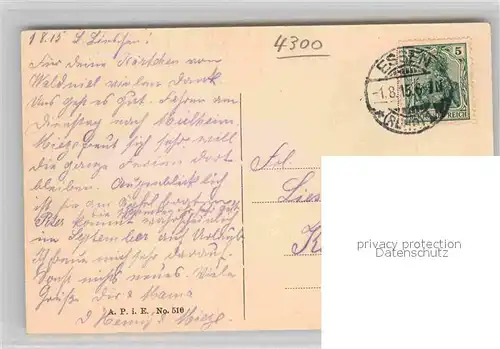 1.8.15 L. Lieschen!
Für deine Kärtchen von
Waldniel vielen Dank
Uns geht es gut. Fahren am
Dienstag nach Mülheim.
Mieze freut sich sehr will
die ganze Ferien dort
bleiben. Augenblicklich
ist sie am
Peter kommt wahrscheinlich
im September auf Urlaub
Ich freue mich sehr darauf.
Sonst nichts neues. Viele
Grüße Dir & Mama
Henny & Mieze.
A. P. i. E. No. 510
4300
ESSEN
1.8.15
(RUHR)
5
REICH
Frl.
Lies
K
privacy protection
Datenschutz